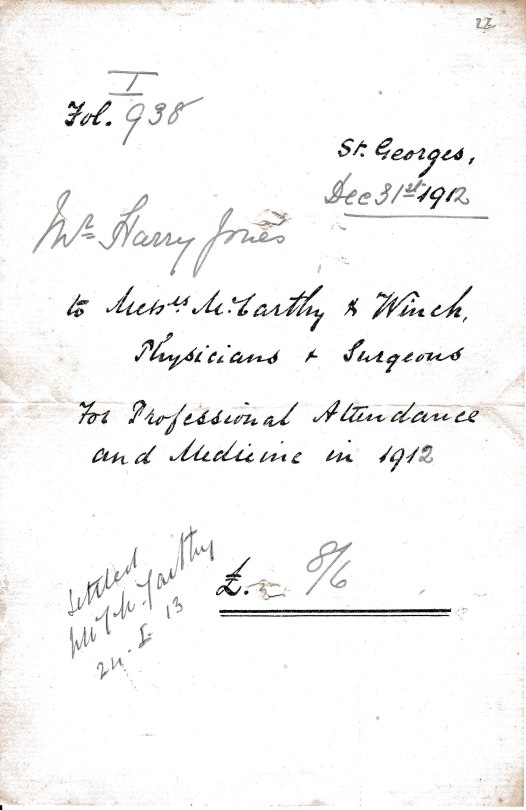 22
I
Fol. 938
St. Georges,
Dec 31st 1912
Mr Harry Jones
to Messrs McCarthy & Winch,
Physicians & Surgeons
For Professional Attendance
and Medicine in 1912
£. 8/6
Settled
McCarthy
24. I 13